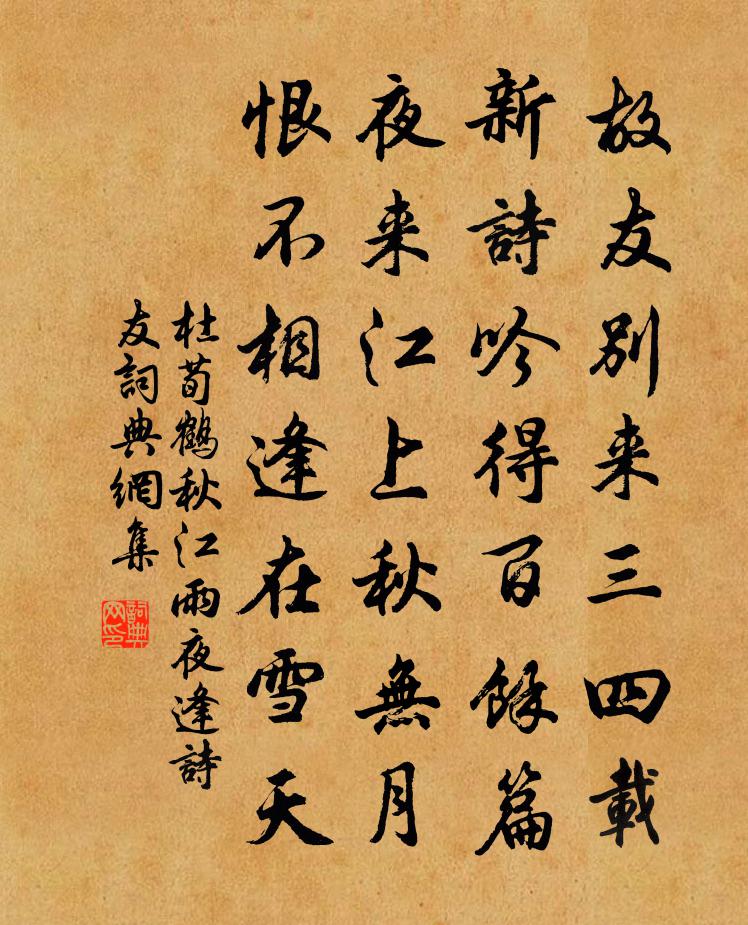 故友別来三四載
新詩吟得百餘篇
夜来江上秋無月
恨不相逢在雪天
杜荀鶴秋江雨夜逢詩
友詞典網集
詞典
网印